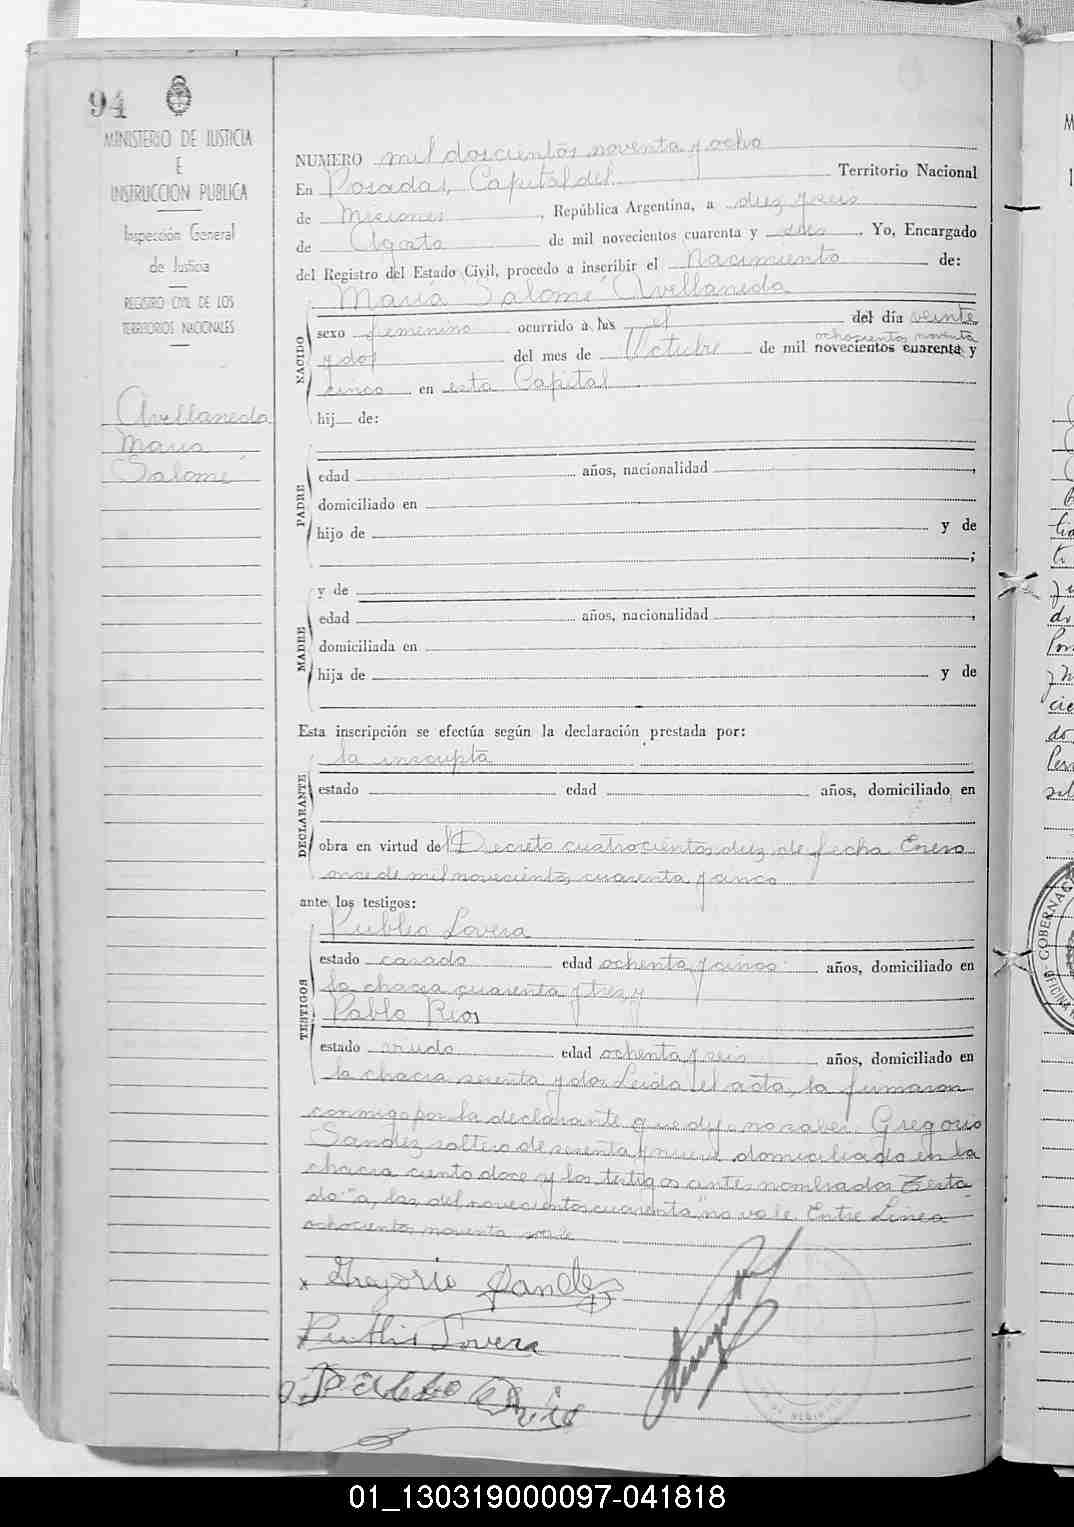 94
MINISTERIO DE JUSTICIA
E
INSTRUCCION PUBLICA
Inspección General
de Justicia
REGISTRO CIVIL DE LOS
TERRITORIOS NACIONALES
Avellaneda
Maria
Salomé
NUMERO mil doscientos noventa y ocho
En Posadas, Capital del Territorio Nacional
de Misiones, República Argentina, a diez y seis
de Agosto de mil novecientos cuarenta y seis. Yo, Encargado
del Registro del Estado Civil, procedo a inscribir el Nacimiento de:
NACIDO
María Salomé Avellaneda
sexo femenino ocurrido a las el del día veinte
ochocientos noventa
y dos del mes de Octubre de mil novecientos cuarenta y
cinco en esta Capital
hij de:
PADRE
edad años, nacionalidad ,
domiciliado en
hijo de y de
;
MADRE
y de
edad años, nacionalidad ,
domiciliada en
hija de y de
Esta inscripción se efectúa según la declaración prestada por:
DECLARANTE
la inscripta
estado edad años, domiciliado en
obra en virtud del Decreto cuatrocientos diez de fecha Enero
once de mil novecientos cuarenta y cinco
ante los testigos:
TESTIGOS
Publio Lovera
estado casado edad ochenta y cinco años, domiciliado en
la chacra cuarenta y tres y
Pablo Rios
estado viudo edad ochenta y seis años, domiciliado en
la chacra sesenta y dos Leida el acta, la firmaron
conmigo por la declarante que dijo no saber Gregorio
Sandez soltero de sesenta y nueve domiciliado en la
chacra ciento doce y los testigos antes nombrados Testa
do "a, las del novecientos cuarenta" no vale. Entre Linea
ochocientos noventa vale
Gregorio Sandez
Publio Lovera
Pablo Rios
GOBERNAC
OFICINA
01_130319000097-041818